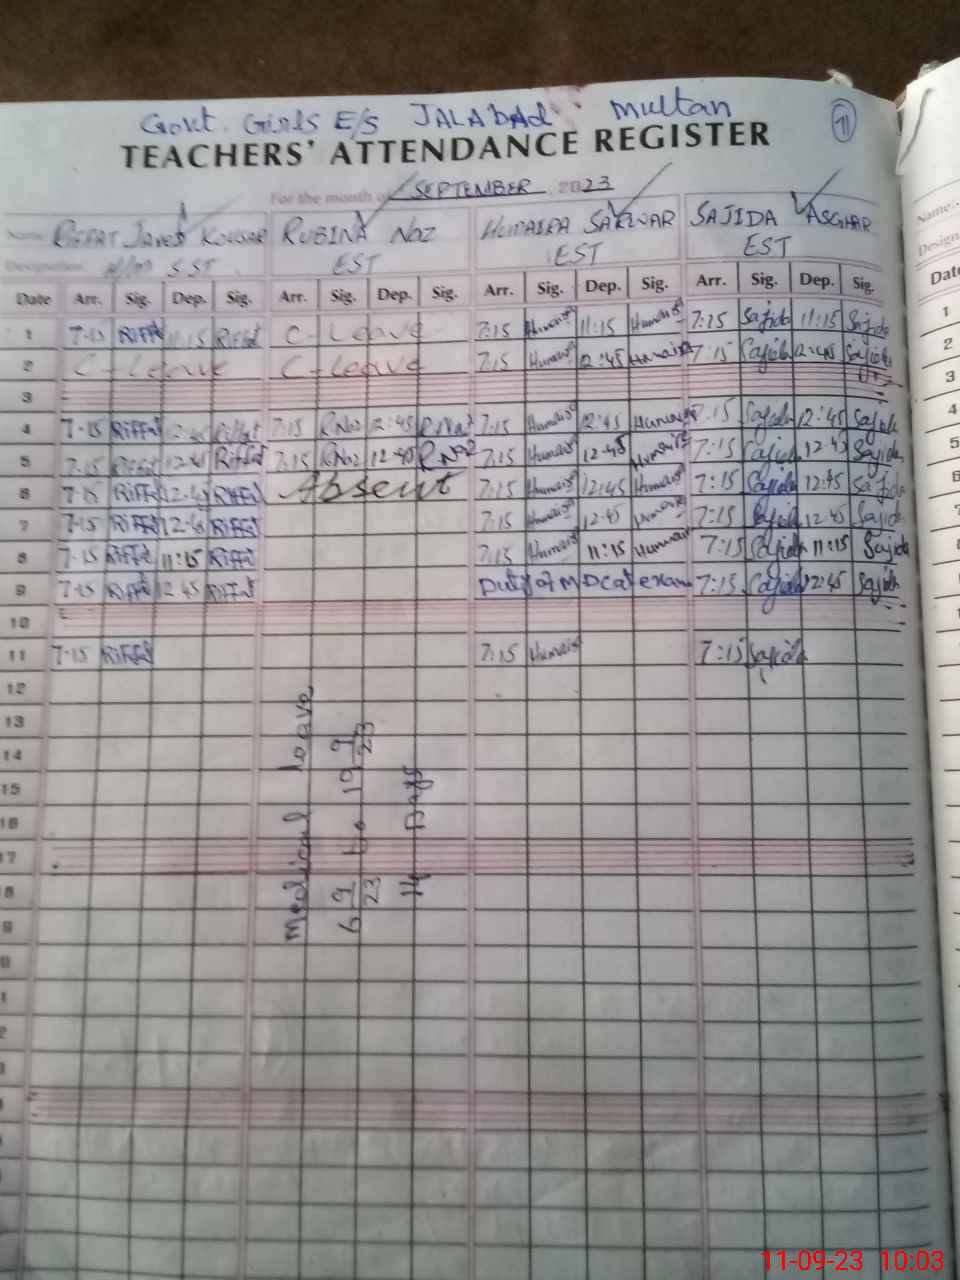 Govt. Girls E/S JALABAD Multan 71
TEACHERS' ATTENDANCE REGISTER
For the month of SEPTEMBER 2023
Name RIFFAT Javed KOUSAR RUBINA Naz HUMAIRA SARWAR SAJIDA ASGHAR Name:-
Designation SST EST EST EST Design
Date Arr. Sig. Dep. Sig. Arr. Sig. Dep. Sig. Arr. Sig. Dep. Sig. Arr. Sig. Dep. Sig. Date
1 7-15 Riffat 11:15 Riffat C-Leave 7:15 Humaira 11:15 Humaira 7:15 Sajida 11:15 Sajida 1
2 C-Leave C-Leave 7:15 Humaira 12:45 Humaira 7:15 Sajida 12:45 Sajida 2
3 3
4 7-15 Riffat 12:45 Riffat 7:15 RNaz 12:45 RNaz 7:15 Humaira 12:45 Humaira 7:15 Sajida 12:45 Sajida 4
5 7-15 Riffat 12:45 Riffat 7:15 RNaz 12:45 RNaz 7:15 Humaira 12:45 Humaira 7:15 Sajida 12:45 Sajida 5
6 7-15 Riffat 12:45 Riffat Absent 7:15 Humaira 12:45 Humaira 7:15 Sajida 12:45 Sajida 6
7 7-15 Riffat 12:45 Riffat 7:15 Humaira 12:45 Humaira 7:15 Sajida 12:45 Sajida 7
8 7-15 Riffat 11:15 Riffat 7:15 Humaira 11:15 Humaira 7:15 Sajida 11:15 Sajida 8
9 7-15 Riffat 12:45 Riffat Duty of MDcat exam 7:15 Sajida 12:45 Sajida 9
10 1
11 7-15 Riffat 7:15 Humaira 7:15 Sajida 1
12
13
14
15
16
17
8
9
0
1
2
3
Medical leave
6 9/23 to 19 9/23
14 Days
11-09-23 10:03